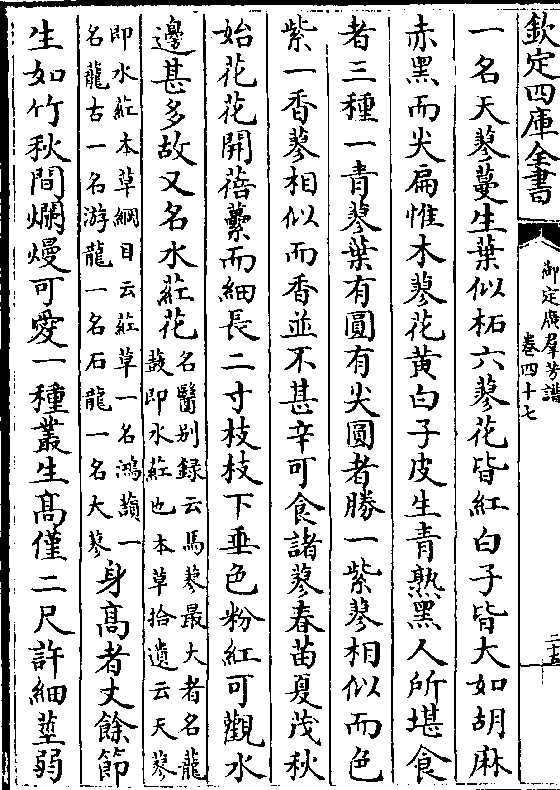 欽定四庫全書
御定廣羣芳譜
卷四十七
一名天蓼蔓生葉似柘六蓼花皆紅白子皆大如胡麻
赤黑而尖扁惟木蓼花黃白子皮生青熟黑人所堪食
者三種一青蓼葉有圓有尖圓者勝一紫蓼相似而色
紫一香蓼相似而香並不甚辛可食諸蓼春苗夏茂秋
始花花開蓓蘽而細長二寸枝枝下垂色粉紅可觀水
邊甚多故又名水葒花
名醫别録云馬蓼最大者名龍
鼓即水葒也本草拾遺云天蓼
即水葒本草綱目云葒草一名鴻䕅一
名龍古一名游龍一名石龍一名大蓼
身高者丈餘節
生如竹秋間爛熳可愛一種叢生高僅二尺許細莖弱